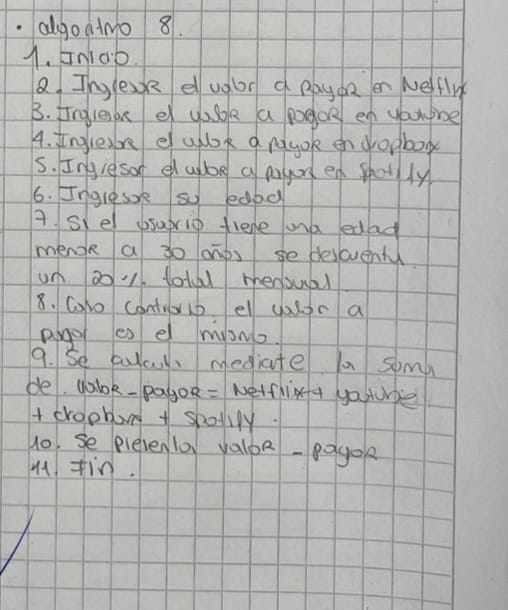 • algoritmo 8.
1. Inicio
2. Ingresar el valor a pagar en Netflix
3. Ingresar el valor a pagar en youtube
4. Ingresar el valor a pagar en dropbox
5. Ingresar el valor a pagar en spotify
6. Ingresar su edad
7. Si el usuario tiene una edad
menor a 30 años se descuenta
un 20% total mensual
8. Caso contrario el valor a
pagar es el mismo.
9. Se calcula mediate la suma
de valor-pagar = Netflix + youtube
+ dropbox + spotify.
10. Se presenta valor - pagar
11. Fin.